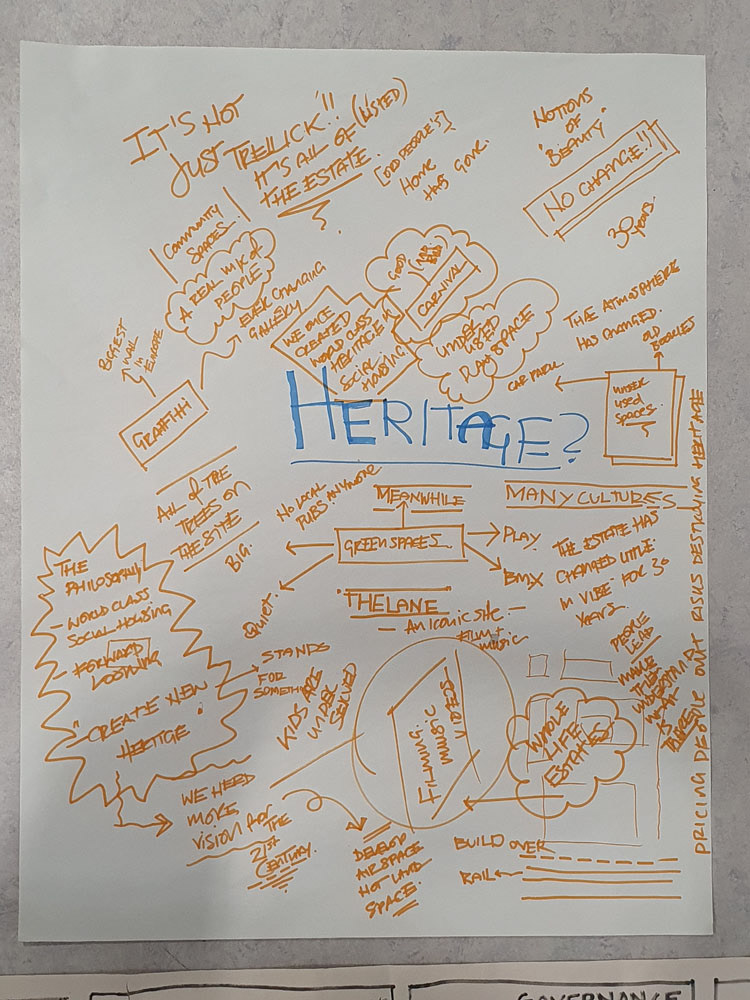 IT'S NOT
JUST TRELLICK!!
IT'S ALL OF (LISTED)
THE ESTATE.
[OLD PEOPLE'S]
HOME
HAS GONE.
NOTIONS
OF
BEAUTY.
NO CHANGE!!
30 years.
COMMUNITY
SPACES.
A REAL MIX OF
PEOPLE
EVER CHANGING
GALLERY
BIGGEST
WALL
IN
EUROPE
GRAFFITI
WE ONCE
CREATED
WORLD CLASS
HERITAGE IN
SOCIAL
HOUSING
GOOD
CARNIVAL
UNDER
USED
PLAYSPACE
THE ATMOSPHERE
HAS CHANGED.
CAR PARK
UNDER
used
spaces
HERITAGE?
ALL OF THE
TREES ON
THE SITE
NO LOCAL
PUBS ANYMORE
MEANWHILE
MANY CULTURES
GREEN SPACES
BIG.
Quiet.
PLAY
BMX
THE ESTATE HAS
CHANGED LITTLE
IN VIBE FOR 30
YEARS.
THE LANE
- AN ICONIC SITE -
FILM +
music
THE
PHILOSOPHY
- WORLD CLASS
SOCIAL HOUSING
- FORWARD
LOOKING
- CREATE NEW
HERITGE
STANDS
FOR
SOMETHING
KIDS ARE
UNDER
SERVED
WE NEED
MORE
VISION FOR
THE
21ST
CENTURY.
FILMING
MUSIC
VIDEOS
WHOLE
LIFE
ESTATES
PEOPLE
LEAD
MAKE
THEM
UNDERSTAND
WHAT
IS
THERE
DEVELOP
AIRSPACE
NOT LAND
SPACE.
BUILD OVER
RAIL
PRICING PEOPLE OUT RISKS DESTROYING HERITAGE
GOVERNANCE